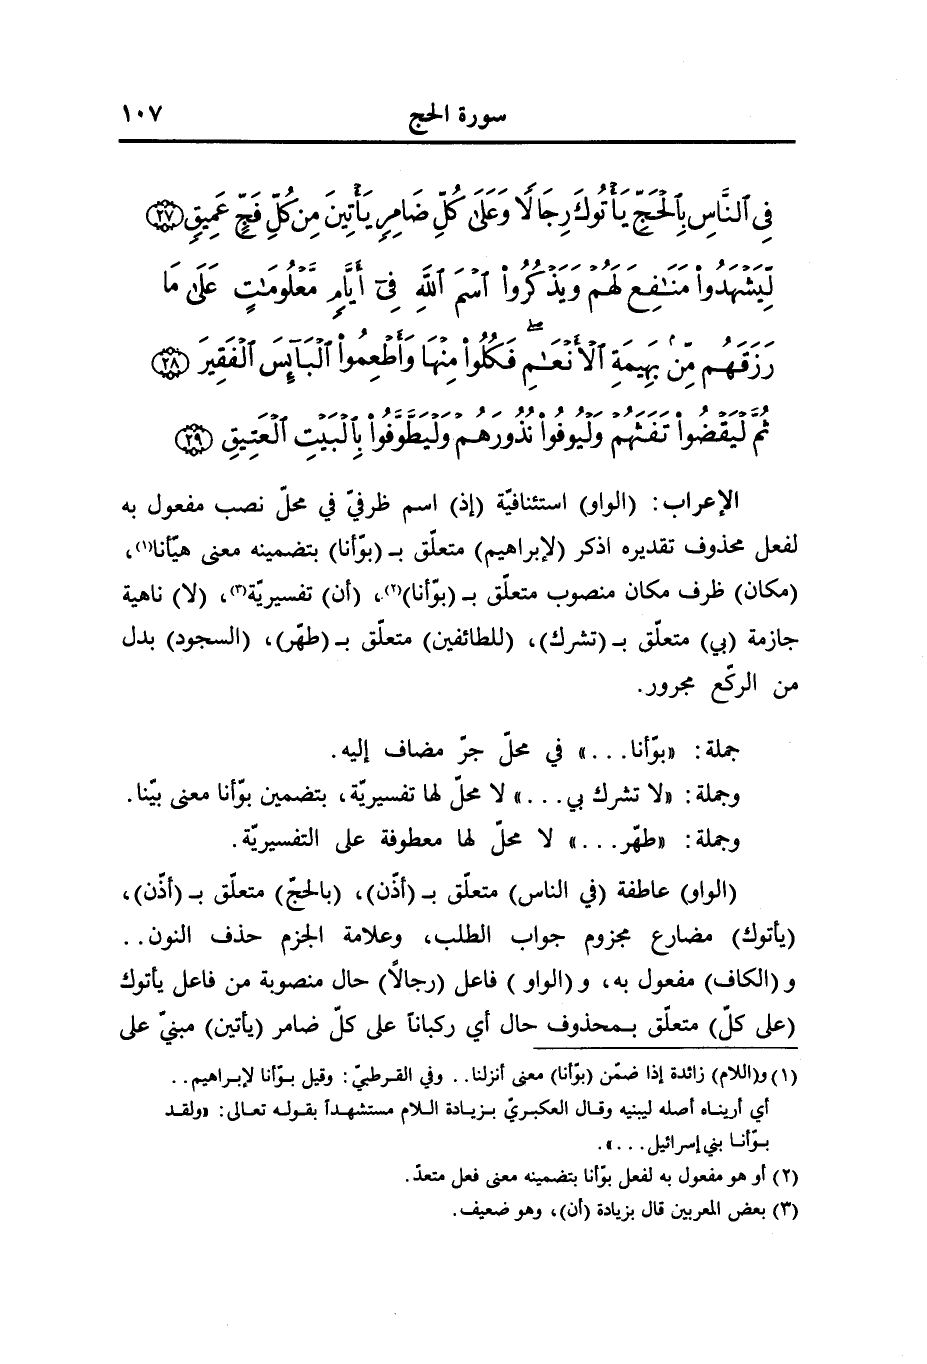 سورة الحج
١٠٧
فِى ٱلنَّاسِ بِٱلْحَجِّ يَأْتُوكَ رِجَالًا وَعَلَىٰ كُلِّ ضَامِرٍ يَأْتِينَ مِن كُلِّ فَجٍّ عَمِيقٍ ﴿٢٧﴾
لِّيَشْهَدُوا۟ مَنَٰفِعَ لَهُمْ وَيَذْكُرُوا۟ ٱسْمَ ٱللَّهِ فِىٓ أَيَّامٍ مَّعْلُومَٰتٍ عَلَىٰ مَا
رَزَقَهُم مِّنۢ بَهِيمَةِ ٱلْأَنْعَٰمِ ۖ فَكُلُوا۟ مِنْهَا وَأَطْعِمُوا۟ ٱلْبَآئِسَ ٱلْفَقِيرَ ﴿٢٨﴾
ثُمَّ لْيَقْضُوا۟ تَفَثَهُمْ وَلْيُوفُوا۟ نُذُورَهُمْ وَلْيَطَّوَّفُوا۟ بِٱلْبَيْتِ ٱلْعَتِيقِ ﴿٢٩﴾
الإعراب: (الواو) استئنافيّة (إذ) اسم ظرفيّ في محلّ نصب مفعول به
لفعل محذوف تقديره اذكر (لإبراهيم) متعلّق بـ (بوّأنا) بتضمينه معنى هيّأنا(١)،
(مكان) ظرف مكان منصوب متعلّق بـ (بوّأنا)(٢)، (أن) تفسيريّة(٣)، (لا) ناهية
جازمة (بي) متعلّق بـ (تشرك)، (للطائفين) متعلّق بـ (طهّر)، (السجود) بدل
من الركّع مجرور.
جملة: «بوّأنا...» في محلّ جرّ مضاف إليه.
وجملة: «لا تشرك بي...» لا محلّ لها تفسيريّة، بتضمين بوّأنا معنى بيّنا.
وجملة: «طهّر...» لا محلّ لها معطوفة على التفسيريّة.
(الواو) عاطفة (في الناس) متعلّق بـ (أذّن)، (بالحجّ) متعلّق بـ (أذّن)،
(يأتوك) مضارع مجزوم جواب الطلب، وعلامة الجزم حذف النون..
و (الكاف) مفعول به، و (الواو ) فاعل (رجالًا) حال منصوبة من فاعل يأتوك
(على كلّ) متعلّق بـمحذوف حال أي ركباناً على كلّ ضامر (يأتين) مبنيّ على
(١) و(اللام) زائدة إذا ضمّن (بوّأنا) معنى أنزلنا.. وفي القرطبيّ: وقيل بوّأنا لإبراهيم..
أي أريناه أصله ليبنيه وقال العكبريّ بزيادة اللام مستشهداً بقوله تعالى: «ولقد
بوّأنا بني إسرائيل...».
(٢) أو هو مفعول به لفعل بوّأنا بتضمينه معنى فعل متعدّ.
(٣) بعض المعربين قال بزيادة (أن)، وهو ضعيف.